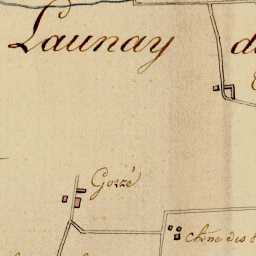 Launay d
Gozzé
chêne des